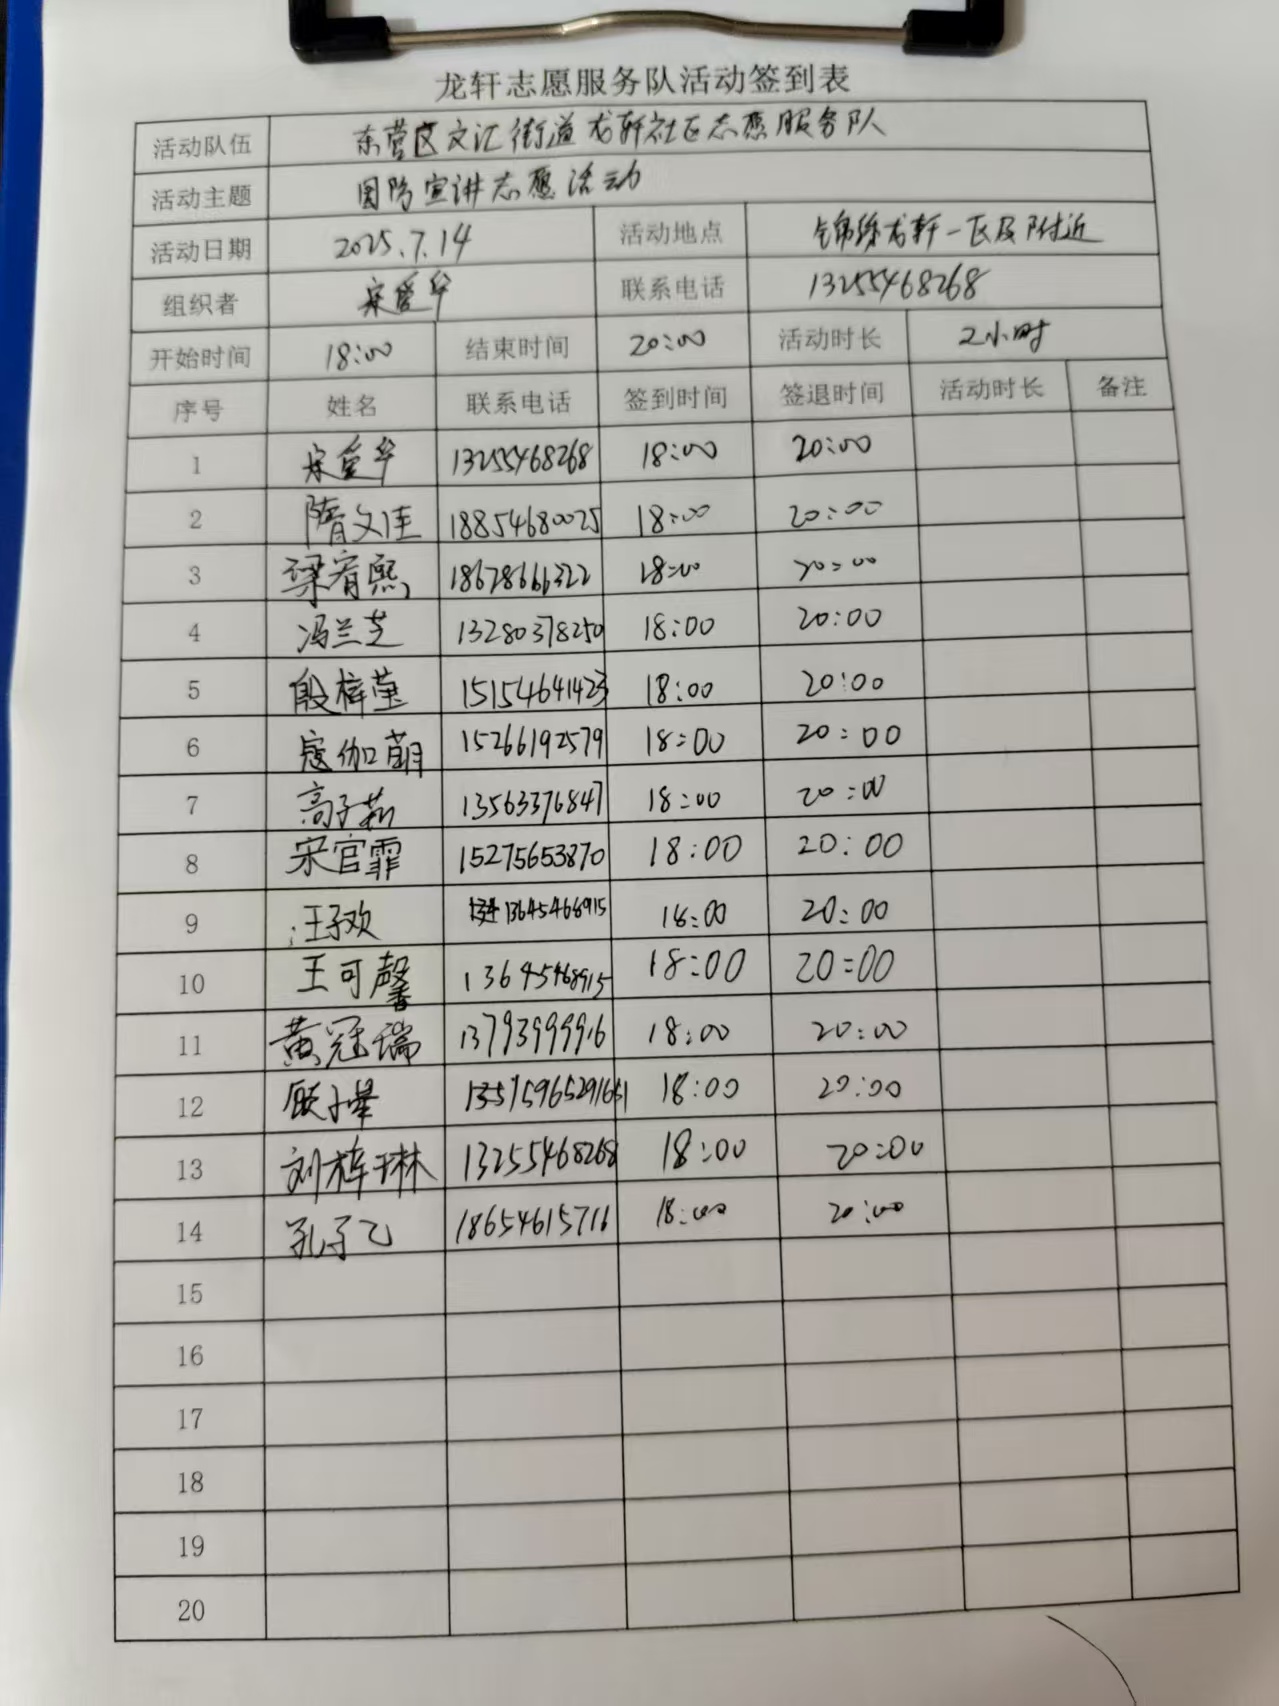 龙轩志愿服务队活动签到表
活动队伍 东营区文汇街道龙轩社区志愿服务队
活动主题 国防宣讲志愿活动
活动日期 2025.7.14 活动地点 锦绣龙轩一区及附近
组织者 宋爱华 联系电话 13255468268
开始时间 18:00 结束时间 20:00 活动时长 2小时
序号 姓名 联系电话 签到时间 签退时间 活动时长 备注
1 宋爱华 13255468268 18:00 20:00
2 隋文佳 18854680025 18:00 20:00
3 梁宥熙 18678666322 18:00 20:00
4 冯兰芝 13280378250 18:00 20:00
5 殷梓莹 15154641423 18:00 20:00
6 寇伽萌 15266192579 18:00 20:00
7 高子茹 13563376847 18:00 20:00
8 宋官霏 15275653870 18:00 20:00
9 汪子欢 13645468915 18:00 20:00
10 王可馨 13645468915 18:00 20:00
11 黄冠瑞 13793999916 18:00 20:00
12 18:00 20:00
13 刘梓琳 13255468268 18:00 20:00
14 孔子乙 18654615716 18:00 20:00
15
16
17
18
19
20